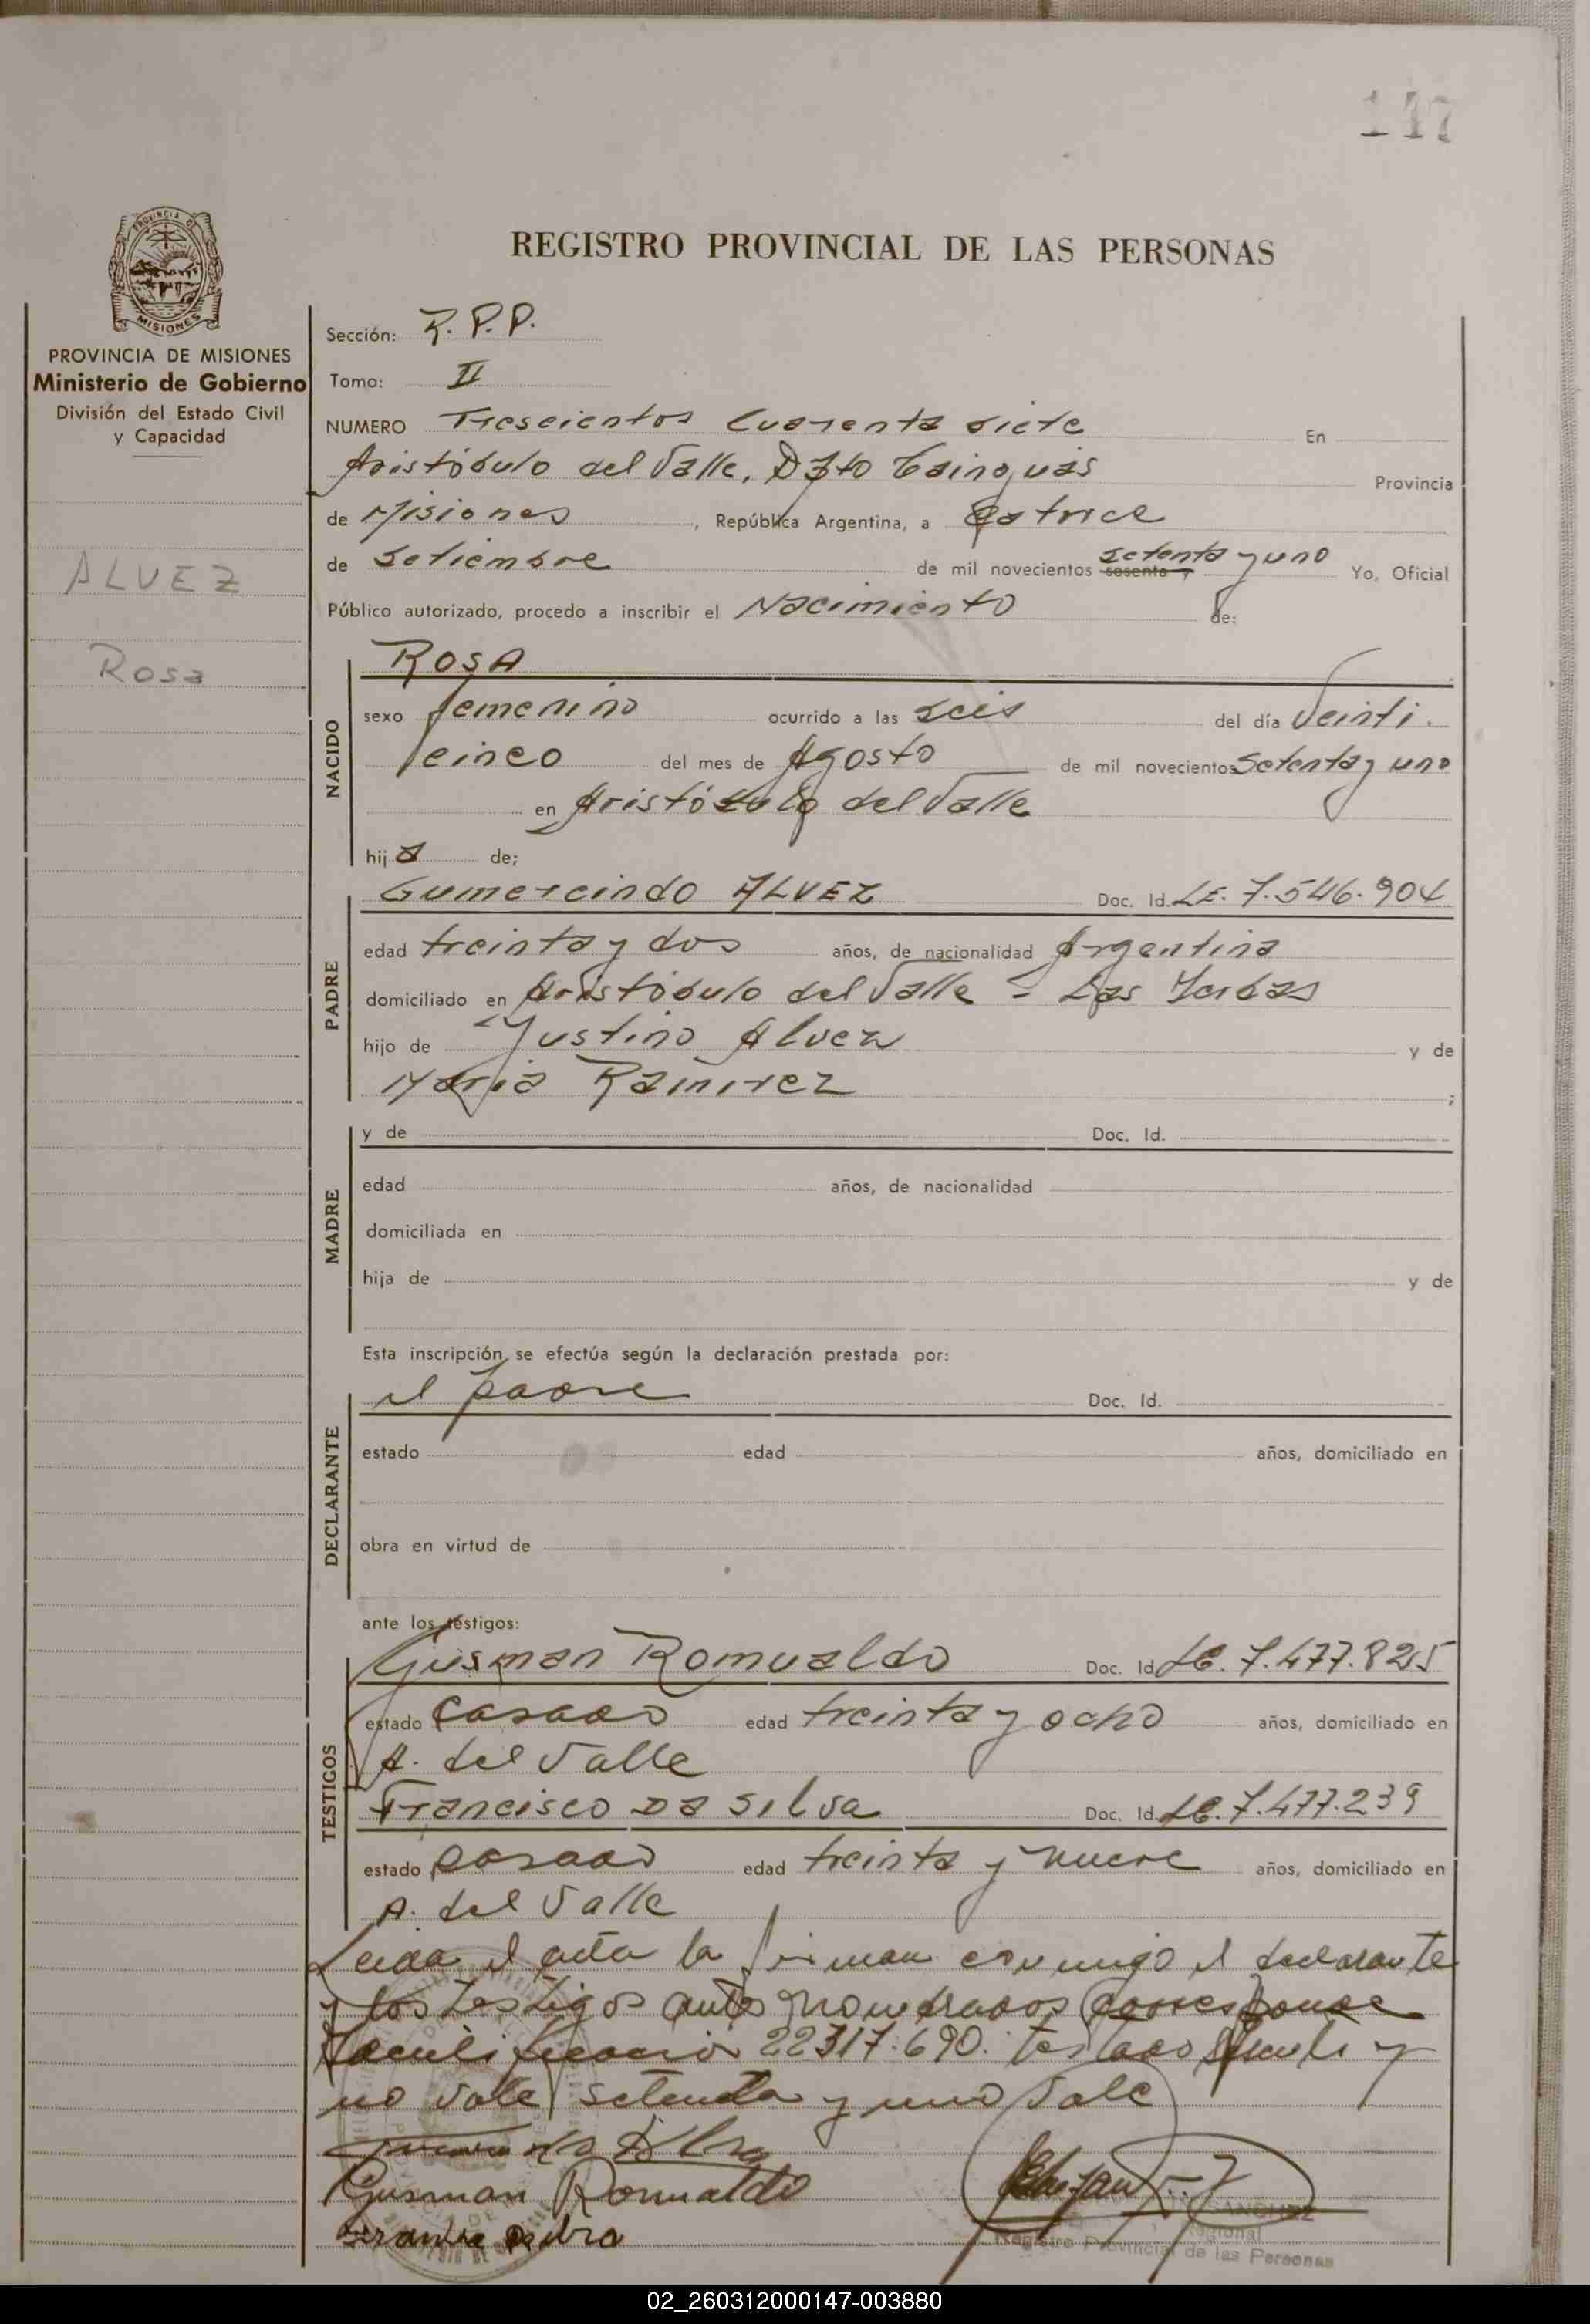 147
REGISTRO PROVINCIAL DE LAS PERSONAS
PROVINCIA DE MISIONES
Ministerio de Gobierno
División del Estado Civil
y Capacidad
ALVEZ
Rosa
Sección: R. P. P.
Tomo: II
NUMERO Trescientos Cuarenta siete En
Aristóbulo del Valle, Dpto Cainguás Provincia
de Misiones, República Argentina, a Catorce
de Setiembre de mil novecientos sesenta y setenta y uno Yo, Oficial
Público autorizado, procedo a inscribir el Nacimiento de:
NACIDO
ROSA
sexo femenino ocurrido a las seis del día Veinti
cinco del mes de Agosto de mil novecientos Setenta y uno
en Aristóbulo del Valle
hija de;
PADRE
Gumercindo ALVEZ Doc. Id. LE. 7.546.904
edad treinta y dos años, de nacionalidad Argentina
domiciliado en Aristóbulo del Valle - Las Yerbas
hijo de Justino Alvez y de
María Ramirez ;
MADRE
y de Doc. Id.
edad años, de nacionalidad
domiciliada en
hija de y de
Esta inscripción se efectúa según la declaración prestada por:
DECLARANTE
el padre Doc. Id.
estado edad años, domiciliado en
obra en virtud de
ante los testigos:
TESTIGOS
Gusman Romualdo Doc. Id. LE. 7.477.825
estado casado edad treinta y ocho años, domiciliado en
A. del Valle
Francisco Da Silva Doc. Id. LE. 7.477.239
estado casado edad treinta y nueve años, domiciliado en
A. del Valle
Leida el acta la firman conmigo el declarante
y los testigos antes nombrados corresponde
22317.690. testado y
no vale setenta y uno vale
Gusman Romualdo
SANCHEZ
Regional
Registro Provincial de las Personas
02_260312000147-003880